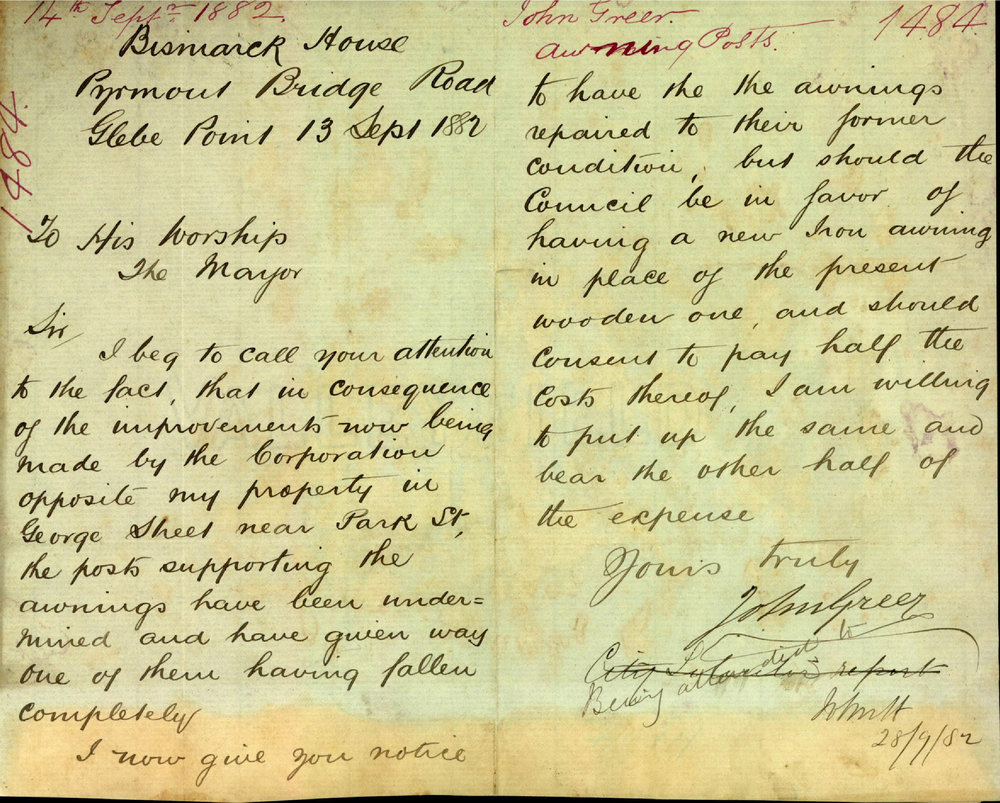 14th Septr 1882.
Bismarck House
Pyrmont Bridge Road
Glebe Point 13 Sept 1882
1484.
To His Worship
The Mayor
Sir,
I beg to call your attention
to the fact, that in consequence
of the improvements now being
made by the Corporation
opposite my property in
George Street near Park St,
the posts supporting the
awnings have been under=
mined and have given way
one of them having fallen
completely
I now give you notice
John Greer.
1484.
Awning Posts.
to have the the awnings
repaired to their former
condition, but should the
Council be in favor of
having a new Iron awning
in place of the present
wooden one, and should
consent to pay half the
costs thereof, I am willing
to put up the same and
bear the other half of
the expense
Yours truly
John Greer
City report
Being attended to
28/9/82